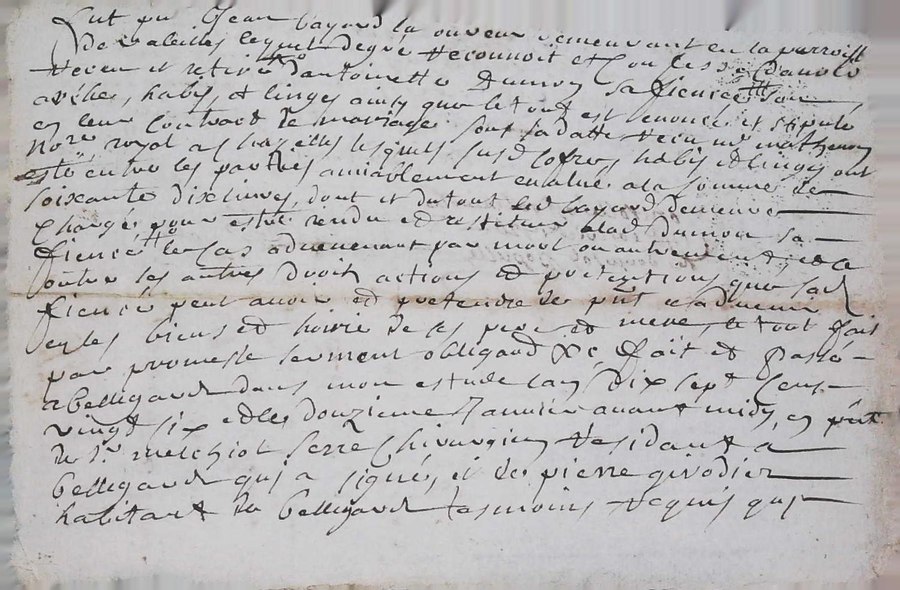 fut pnt Jean bayard laboureur demeurant en la parroisse
de valeilles lequel de gré reconnoit et confesse d'avoir
receu et retiré d'antoinette Dumon sa fiencée son
habis, et linges ainsy que le tout est enoncé et stipulé
en leur contract de mariage sous sa datte receu me mathevon
nore royal a lesquels susd coffres habis et linges ont
esté entre les parties amiablement evalué a la somme de
soixante dix livres, dont et du tout led bayard demeure
chargé pour estre rendu et restitué a lad Dumon sa
fiencée le cas advenant par mort ou autrement, et ce
outre les autres droits actions et pretentions que sad
fiencée peut avoir et pretendre de pnt et advenir
en les biens et hoirie de ses pere et mere, le tout fait
par promesse serment obligaons &c fait et passé
a bellegarde dans mon estude l'an dix sept cens
vingt six et le douzieme Janvier avant midy, en pnce
de sr melchiol serre chirurgien residant a
bellegarde qui a signé, et de pierre girodier
habitant du bellegarde tesmoins requis qui